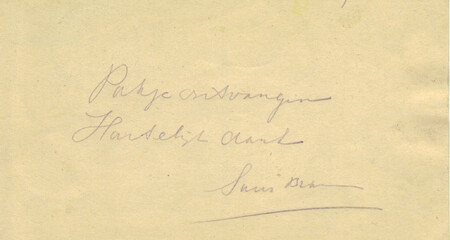 Pakje ontvangen
Hartelijk dank